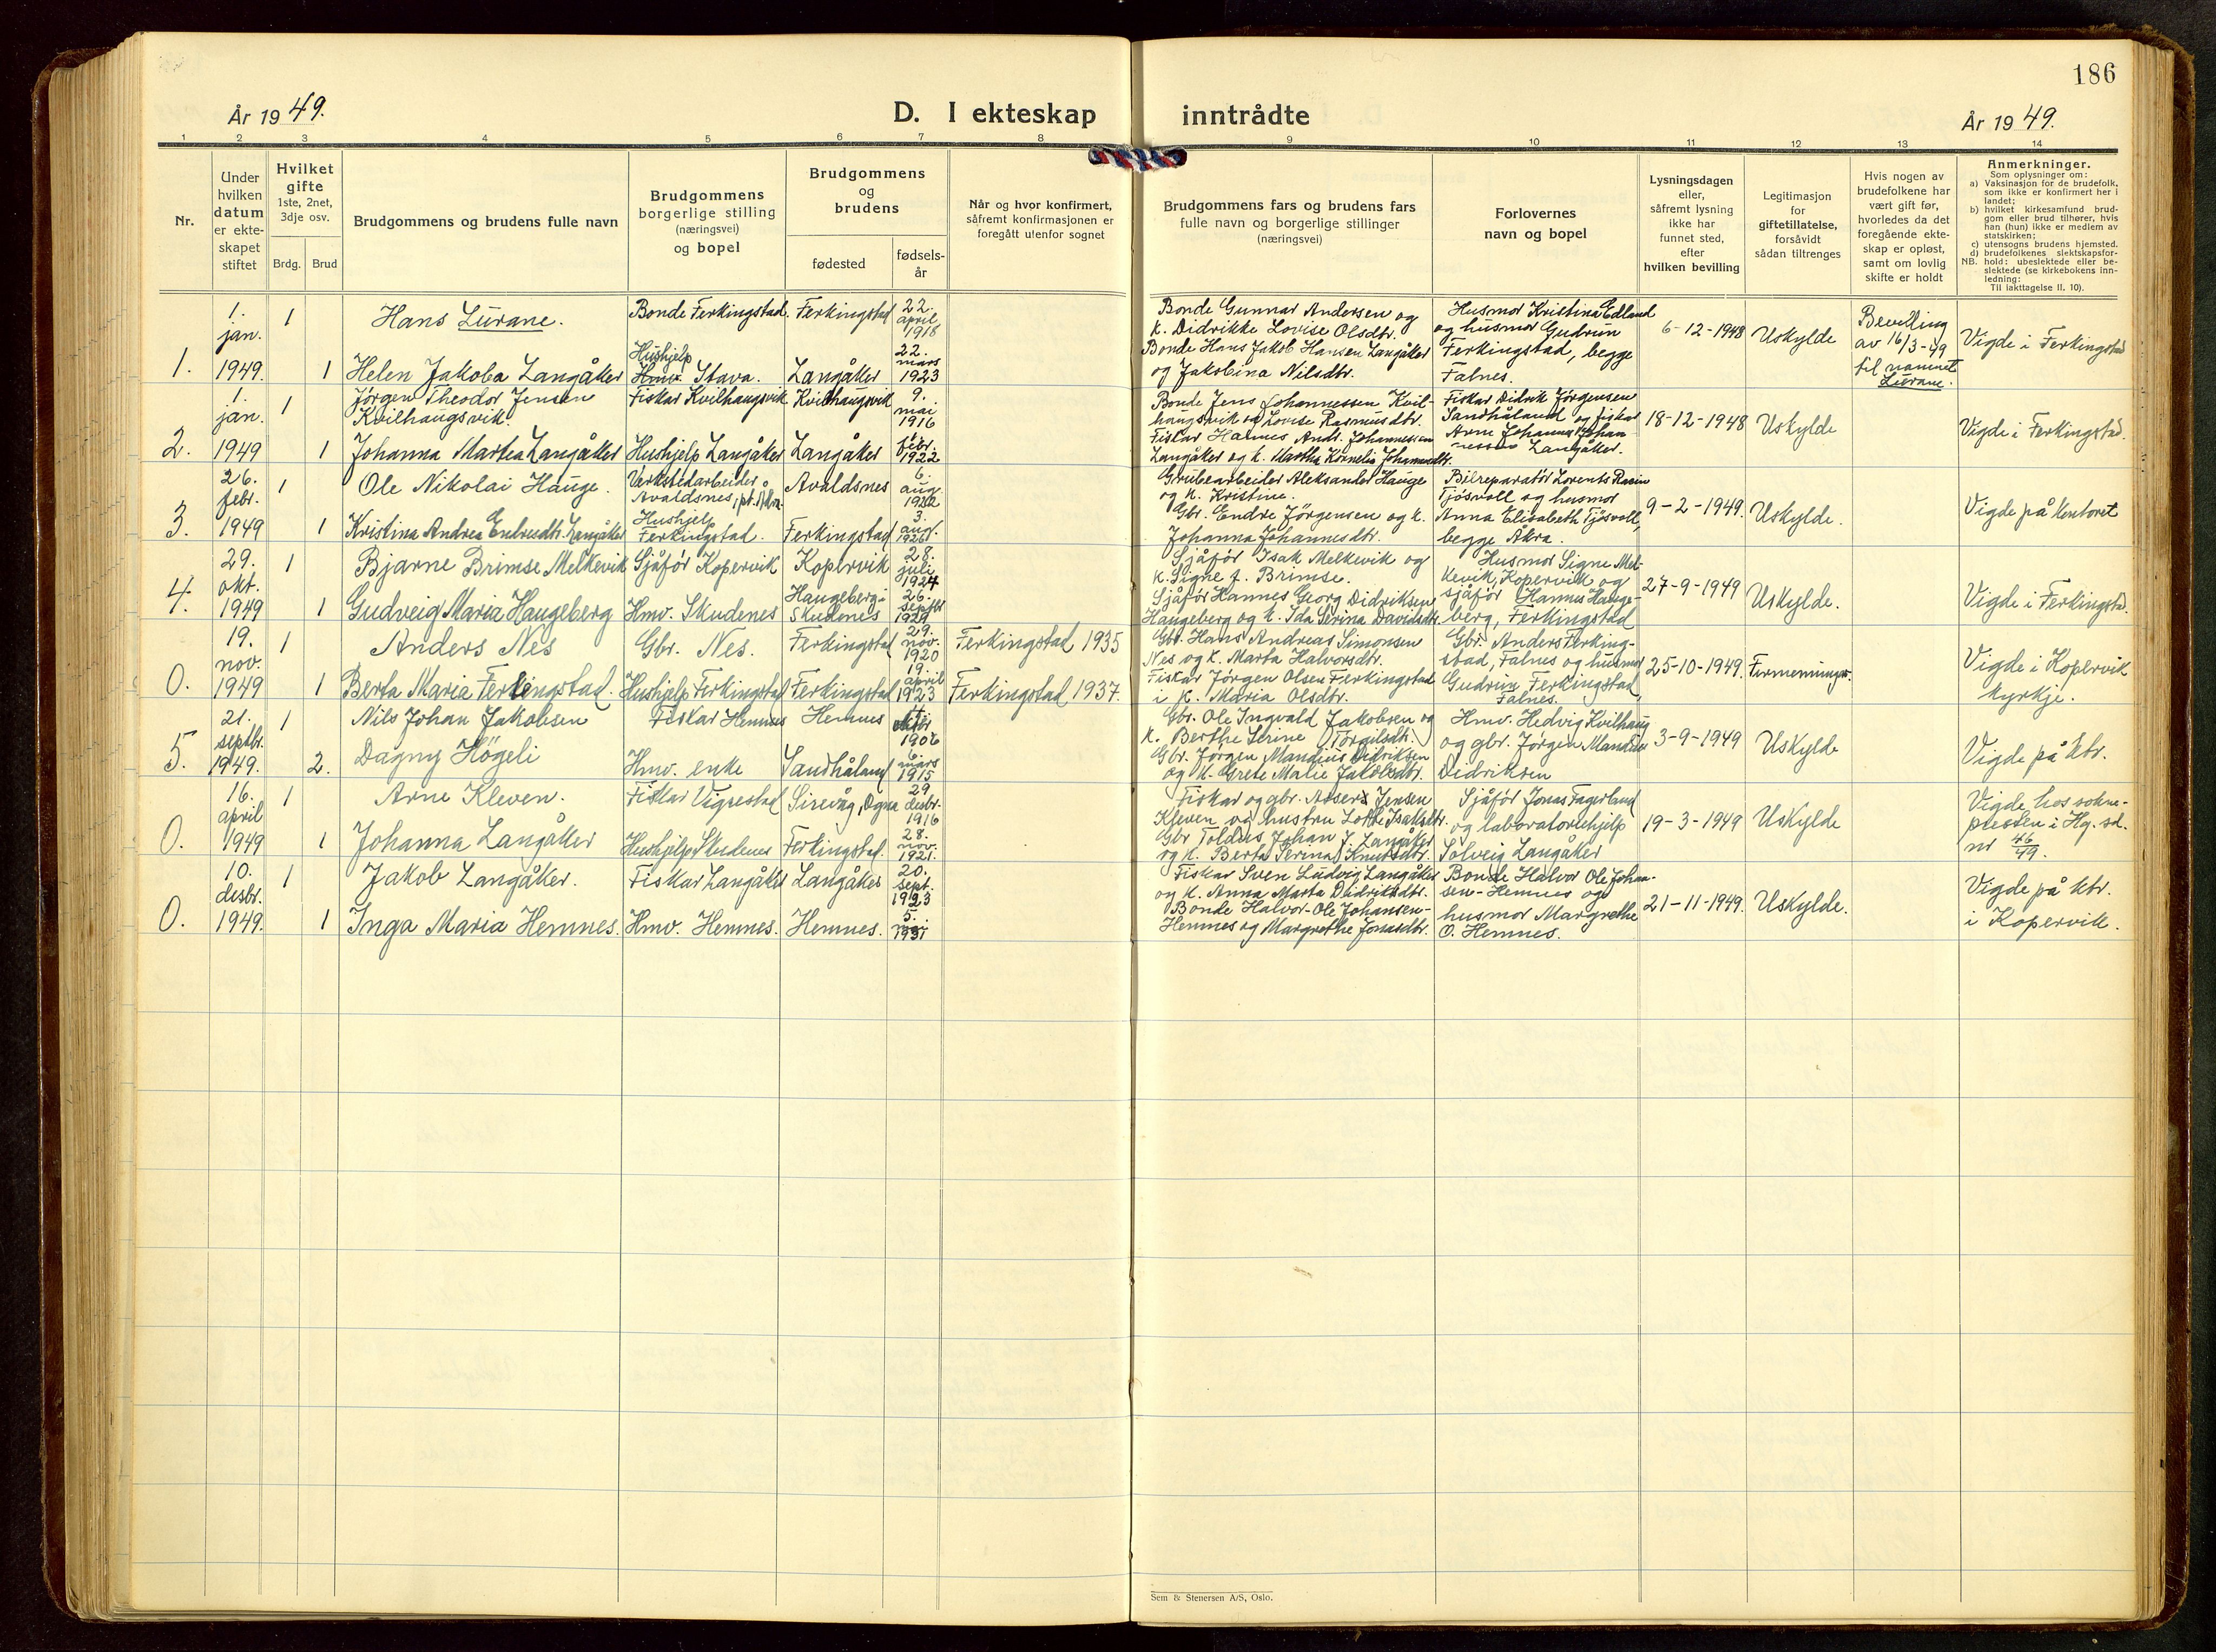 186
År 1949.
D. I ekteskap inntrådte
År 1949.
1 2 3 4 5 6 7 8 9 10 11 12 13 14
Nr.
Under hvilken datum er ekte-skapet stiftet
Hvilket gifte 1ste, 2net, 3dje osv.
Brdg. Brud
Brudgommens og brudens fulle navn
Brudgommens borgerlige stilling (næringsvei) og bopel
Brudgommens og brudens
fødested
fødsels-år
Når og hvor konfirmert, såfremt konfirmasjonen er foregått utenfor sognet
Brudgommens fars og brudens fars fulle navn og borgerlige stillinger (næringsvei)
Forlovernes navn og bopel
Lysningsdagen eller, såfremt lysning ikke har funnet sted, efter hvilken bevilling
Legitimasjon for giftetillatelse, forsåvidt sådan tiltrenges
Hvis nogen av brudefolkene har vært gift før, hvorledes da det foregående ekte-skap er opløst, samt om lovlig skifte er holdt
Anmerkninger.
Som oplysninger om:
a) Vaksinasjon for de brudefolk, som ikke er konfirmert her i landet;
b) hvilket kirkesamfund brud-gom eller brud tilhører, hvis han (hun) ikke er medlem av statskirken;
c) utensogns brudens hjemsted.
d) brudefolkenes slektskapsfor-hold: ubeslektede eller be-slektede (se kirkebokens inn-ledning:
NB.
Til iakttagelse II. 10).
1. 1. jan. 1949. 1 Hans Lurane. Bonde Ferkingstad. Ferkingstad 22. april 1918
1 Helen Jakoba Langåker Hushjelp Hmv. Stava. Langåker 22. mars 1923
Bonde Gunnar Andersen og
k. Didrikke Lovise Olsdtr.
Bonde Hans Jakob Hansen Langåker
og Jakobina Nilsdtr.
Husmor Kristina Edland
og husmor Gudrun
Ferkingstad, begge
Falnes.
6-12-1948 Uskylde
Bevilling
av 16/3-49
til namnet
Lurane.
Vigde i Ferkingstad
2. 1. jan. 1949 1 Jörgen Theodor Jensen
Kvilhaugsvik. Fiskar Kvilhaugsvik Kvilhaugsvik 9. mai 1916
1 Johanna Martea Langåker Hushjelp Langåker Langåker febr. 1922
Bonde Jens Johannessen Kvil-
haugsvik og Lovise Rasmusdtr.
Fiskar Hannes Andr. Johannessen
Langåker og k. Martha Kornelia Johannesdtr.
Fiskar Didrik Jörgensen
Sandhåland og fiskar
Arne Johannes Johan
nessen Langåker.
18-12-1948 Uskylde
Vigde i Ferkingstad.
3. 26. febr. 1949 1 Ole Nikolai Hauge. Verkstedarbeider
Avaldsnes, pt. Åkra. Avaldsnes 6. aug. 1922
1 Kristina Andrea Endresdtr. Langåker Hushjelp Ferkingstad. Ferkingstad 3. aug.
Grubearbeider Aleksander Hauge
og k. Kristine.
Gbr. Endre Jörgensen og k.
Johanna Johannesdtr.
Bilreparatör Lorents
Tjösvoll og husmor
Anna Elisabeth Tjösvoll,
begge Åkra.
9-2-1949. Uskylde.
Vigde på kontoret
4. 29. okt. 1949 1 Bjarne Brimse Melkevik Sjåför Kopervik Kopervik 28. juli 1924
1 Gudveig Maria Haugeberg Hmv. Skudenes Haugeberg i Skudenes 26. septbr
Sjåför Isak Melkevik og
k. Signe f. Brimse.
Sjåför Hannes Georg Didriksen
Haugeberg og k. Ida Serina Davidsdtr.
Husmor Signe Mel-
kevik, Kopervik og
sjåför Hannes Hauge-
berg, Ferkingstad
27-9-1949 Uskylde.
Vigde i Ferkingstad.
0. 19. nov. 1949 1 Anders Nes Gbr. Nes. Ferkingstad 29. nov. 1920 Ferkingstad 1935
1 Berta Maria Ferkingstad. Hushjelp Ferkingstad Ferkingstad 19. april 1923 Ferkingstad 1937.
Gbr. Hans Andreas Simonsen
Nes og k. Marta Halvorsdtr.
Fiskar Jörgen Olsen Ferkingstad
i k. Maria Olsdtr.
Gbr. Anders Ferking-
stad, Falnes og husmor
Gudrun Ferkingstad
Falnes.
25-10-1949. Firmenninger.
Vigde i Kopervik
kyrkje.
5. 21. septbr. 1949. 1 Nils Johan Jakobsen Fiskar Hemnes Hemnes
2. Dagny Högeli Hmv. enke Sandhåland 6. mars 1915
Gbr. Ole Ingvald Jakobsen og
k. Berthe Serine (Torgilsdtr.)
Gbr. Jörgen Mandius Didriksen
og k. Grete Malie Jakobsdtr.
Hmv. Hedvig Kvilhaug
og gbr. Jörgen Mandius
Didriksen
3-9-1949 Uskylde
Vigde på ktr.
0. 16. april 1949 1 Arne Kleven. Fiskar Vigrestad Sirevåg, Ogna 29. desbr. 1916
1 Johanna Langåker Hushjelp Skudenes Ferkingstad. 28. nov. 1921.
Fiskar og gbr. Assers Jensen
Kleven og hustru Lotte Isaksdtr.
Gbr Toldius Johan J. Langåker
og k. Berta Serina Knutsdtr.
Sjåför Jonas Fagerland
og laboratoriehjelp
Solveig Langåker
19-3-1949 Uskylde
Vigde hos sokne-
presten i Hg. sd.
nr 46/49.
0. 10. desbr. 1949. 1 Jakob Langåker. Fiskar Langåker Langåker 20. sept. 1923
1 Inga Maria Hemnes. Hmv. Hemnes. Hemnes. 5. mai 1931
Fiskar Sven Ludvig Langåker
og k. Anna Marta Didriksdtr.
Bonde Halvor-Ole Johansen-
Hemnes og Margrethe Jonasdtr.
Bonde Halvor Ole Johan-
sen-Hemnes og
husmor Margrethe
O. Hemnes.
21-11-1949. Uskylde.
Vigde på ktr.
i Kopervik.
Sem & Stenersen A/S, Oslo.